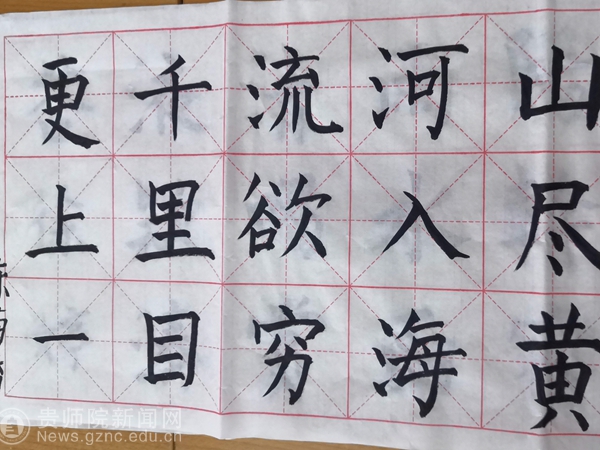 山尽黄
河入海
流欲穷
千里目
更上一
贵师院新闻网
News.gznc.edu.cn